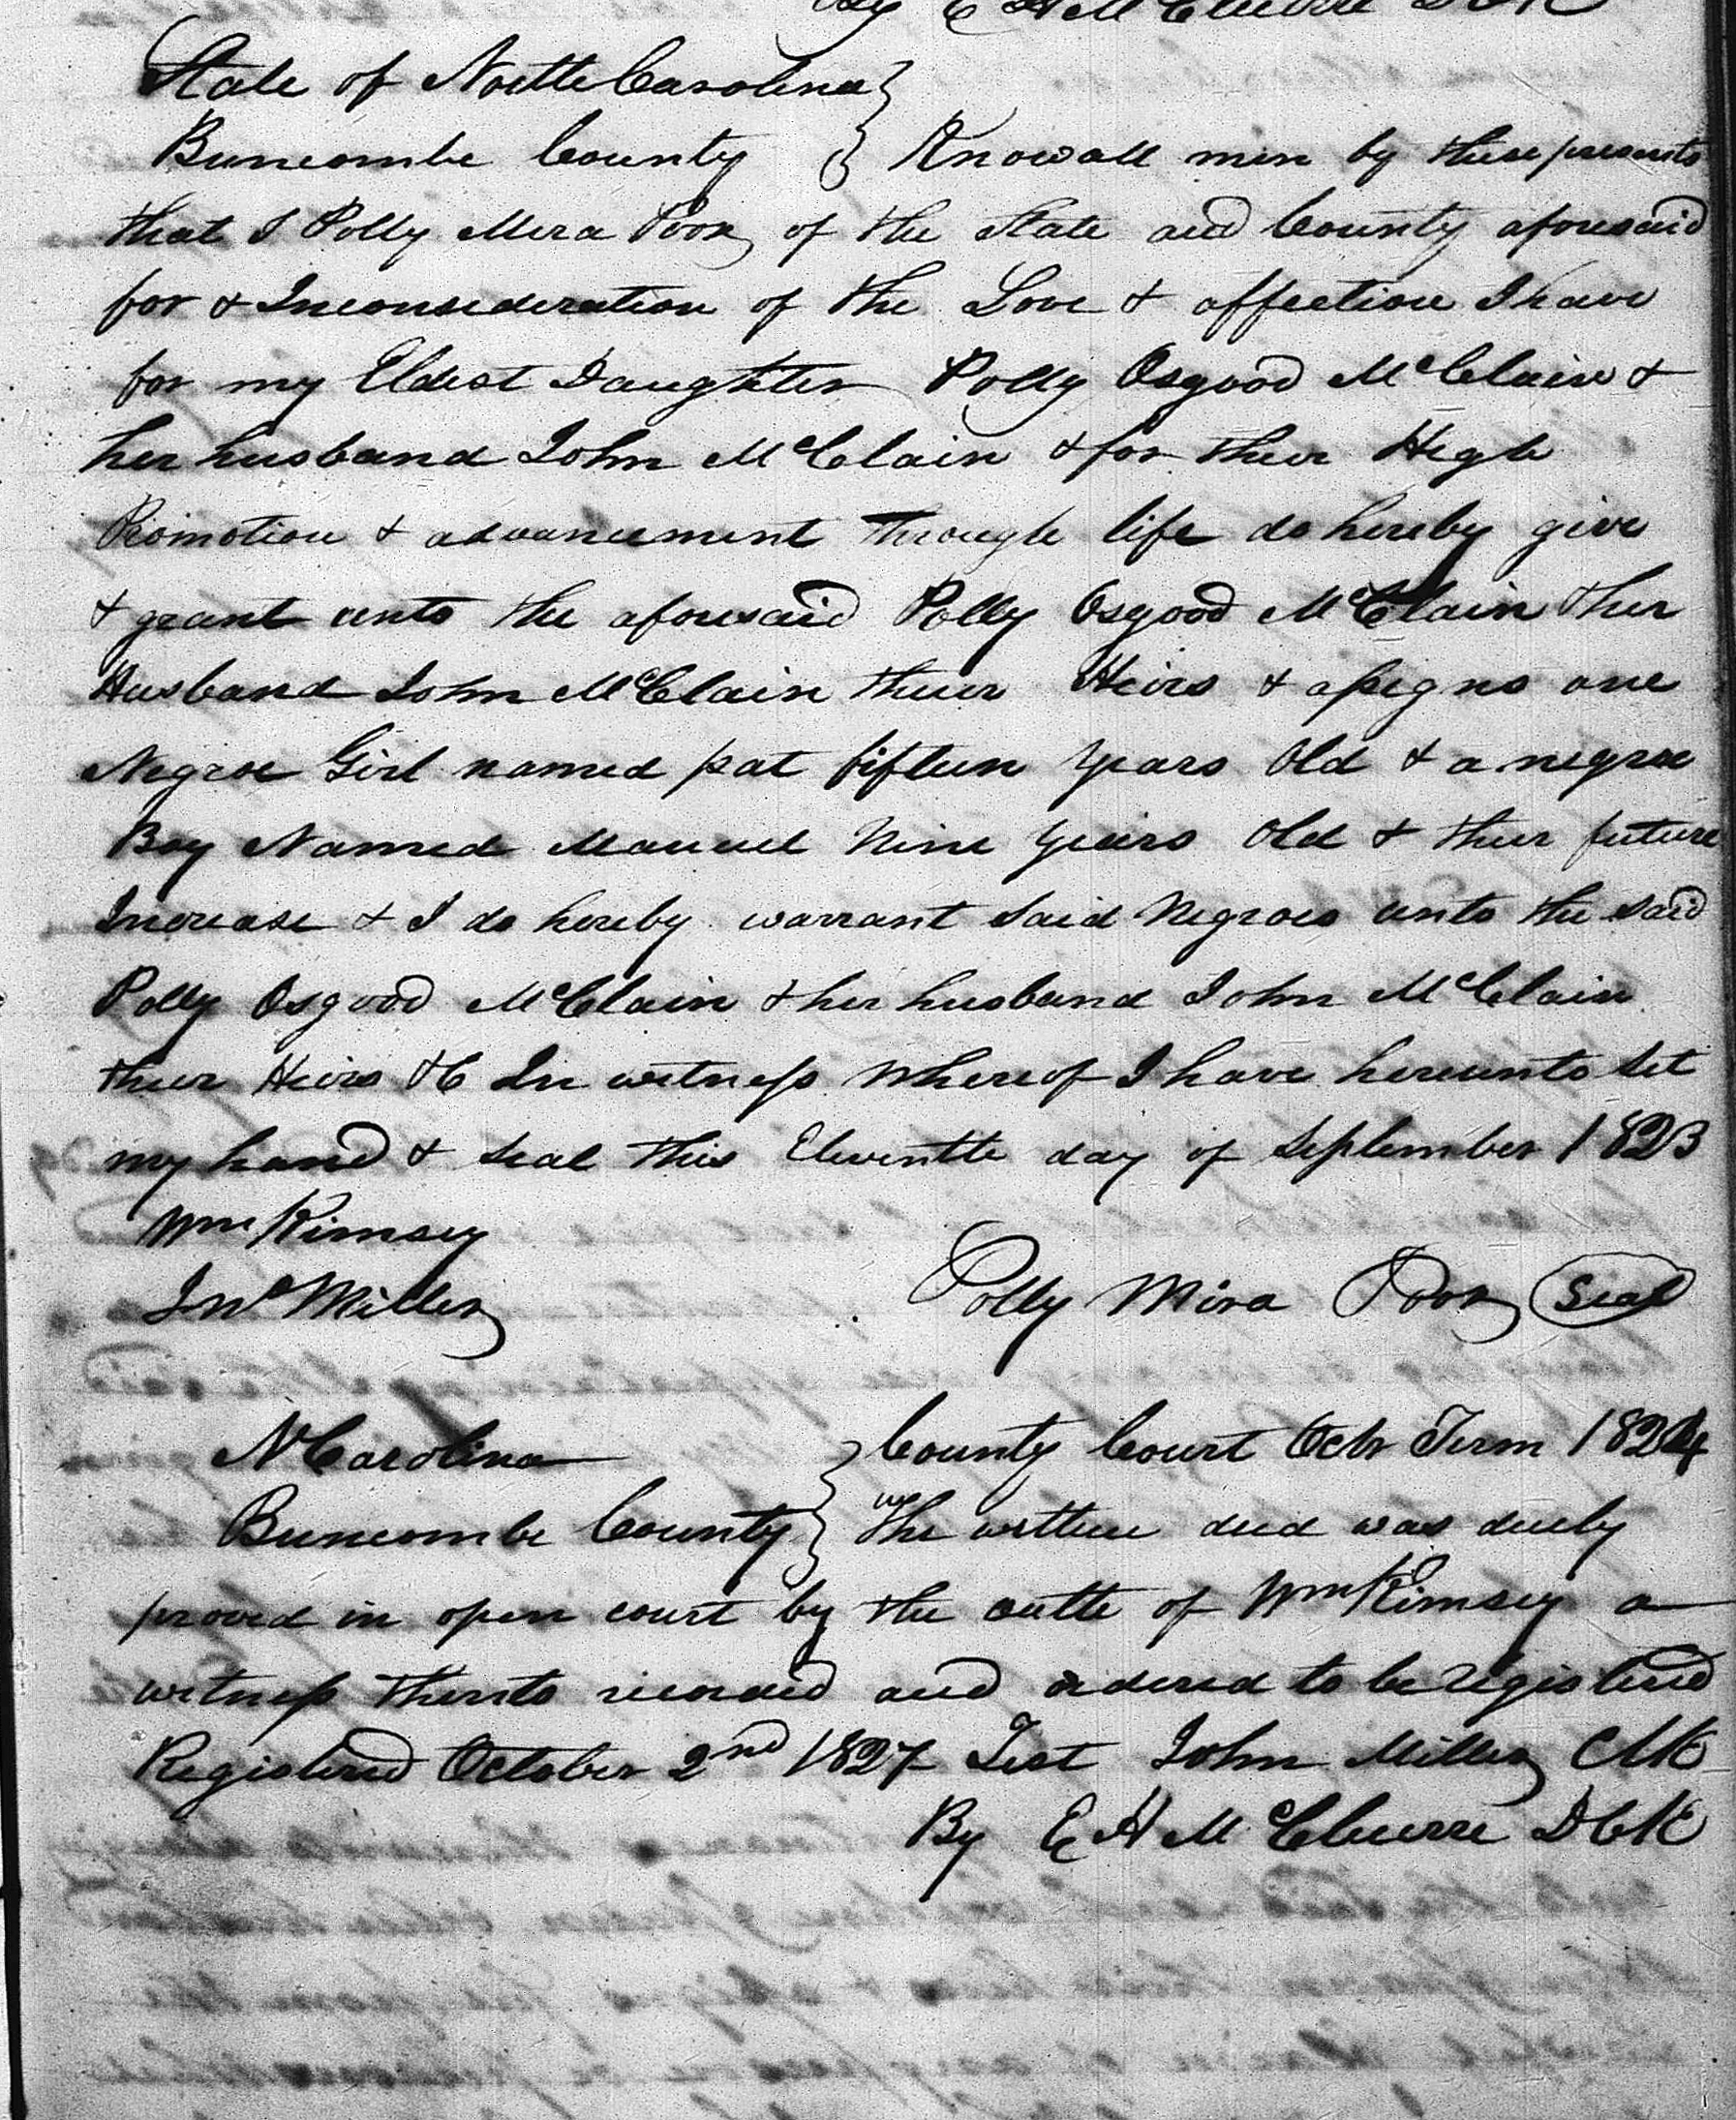 By E H McClure D CK
State of North Carolina
Buncombe County Know all men by these presents
that I Polly Mira Poor of the State and County aforesaid
for & Inconsideration of the Love & affection I have
for my Eldest Daughter Polly Osgood McClain &
her husband John McClain & for their High
Promotion & advancement through life do hereby give
& grant unto the aforesaid Polly Osgood McClain & her
Husband John McClain their Heirs & assigns one
Negroe Girl named pat fifteen years old & a negroe
Boy Named Manuel Nine years old & their future
Increase & I do hereby warrant said Negroes unto the said
Polly Osgood McClain & her husband John McClain
their Heirs &C In witness whereof I have hereunto set
my hand & seal this Eleventh day of September 1823
Wm Kimsey
Jno Miller Polly Mira Poor Seal
N Carolina County Court Octr Term 1824
Buncombe County The within deed was duely
proved in open court by the oath of Wm Kimsey a
witness thereto recorded and ordered to be registered
Registered October 2nd 1827 Test John Miller CLK
By E H McClure D CK